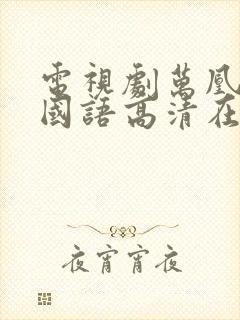 電視劇萬凰
國語高清在
夜宵宵夜